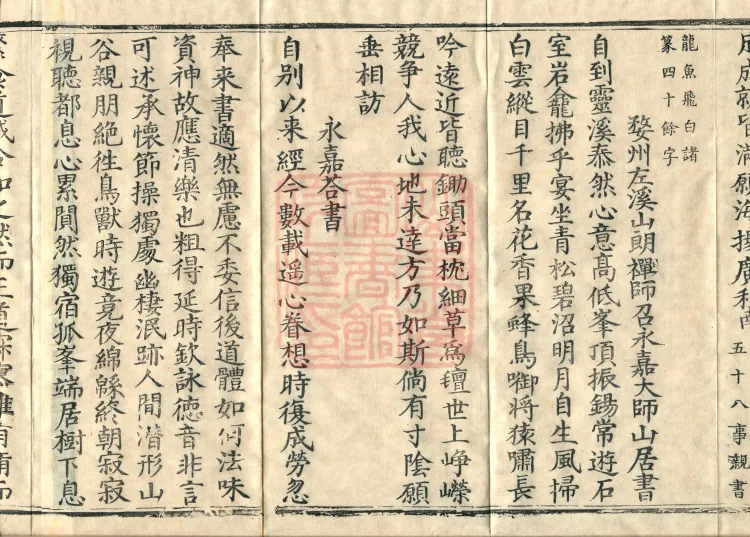 成就皆滿願海 五十八事親書
龍魚飛白諸
篆四十餘字
婺州左溪山朗禪師召永嘉大師山居書
自到靈溪泰然心意高低峯頂振錫常遊石
室岩龕拂乎宴坐青松碧沼明月自生風掃
白雲縱目千里名花香果蜂鳥啣將猿嘯長
吟遠近皆聽鋤頭當枕細草爲氊世上崢嶸
競爭人我心地未達方乃如斯倘有寸陰願
垂相訪
永嘉荅書
自别以来經今數載遥心眷想時復成勞忽
奉来書適然無慮不委信後道體如何法味
資神故應清樂也粗得延時欽詠德音非言
可述承懷節操獨處幽棲泯跡人間潜形山
谷親朋絶徃鳥獸時遊竟夜綿緜終朝寂寂
視聽都息心累闃然獨宿孤峯端居樹下息
道誠合如之然而正道寂寥雖有脩而